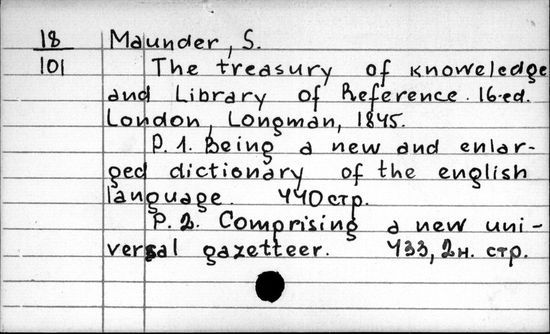 18 Maunder, S.
101 The treasury of knoweledge
and Library of Reference. 16-ed.
London, Longman, 1845.
P. 1. Being a new and enlar-
ged dictionary of the english
language. 440 стр.
P. 2. Comprising a new uni-
versal gazetteer. 433, 2н. стр.